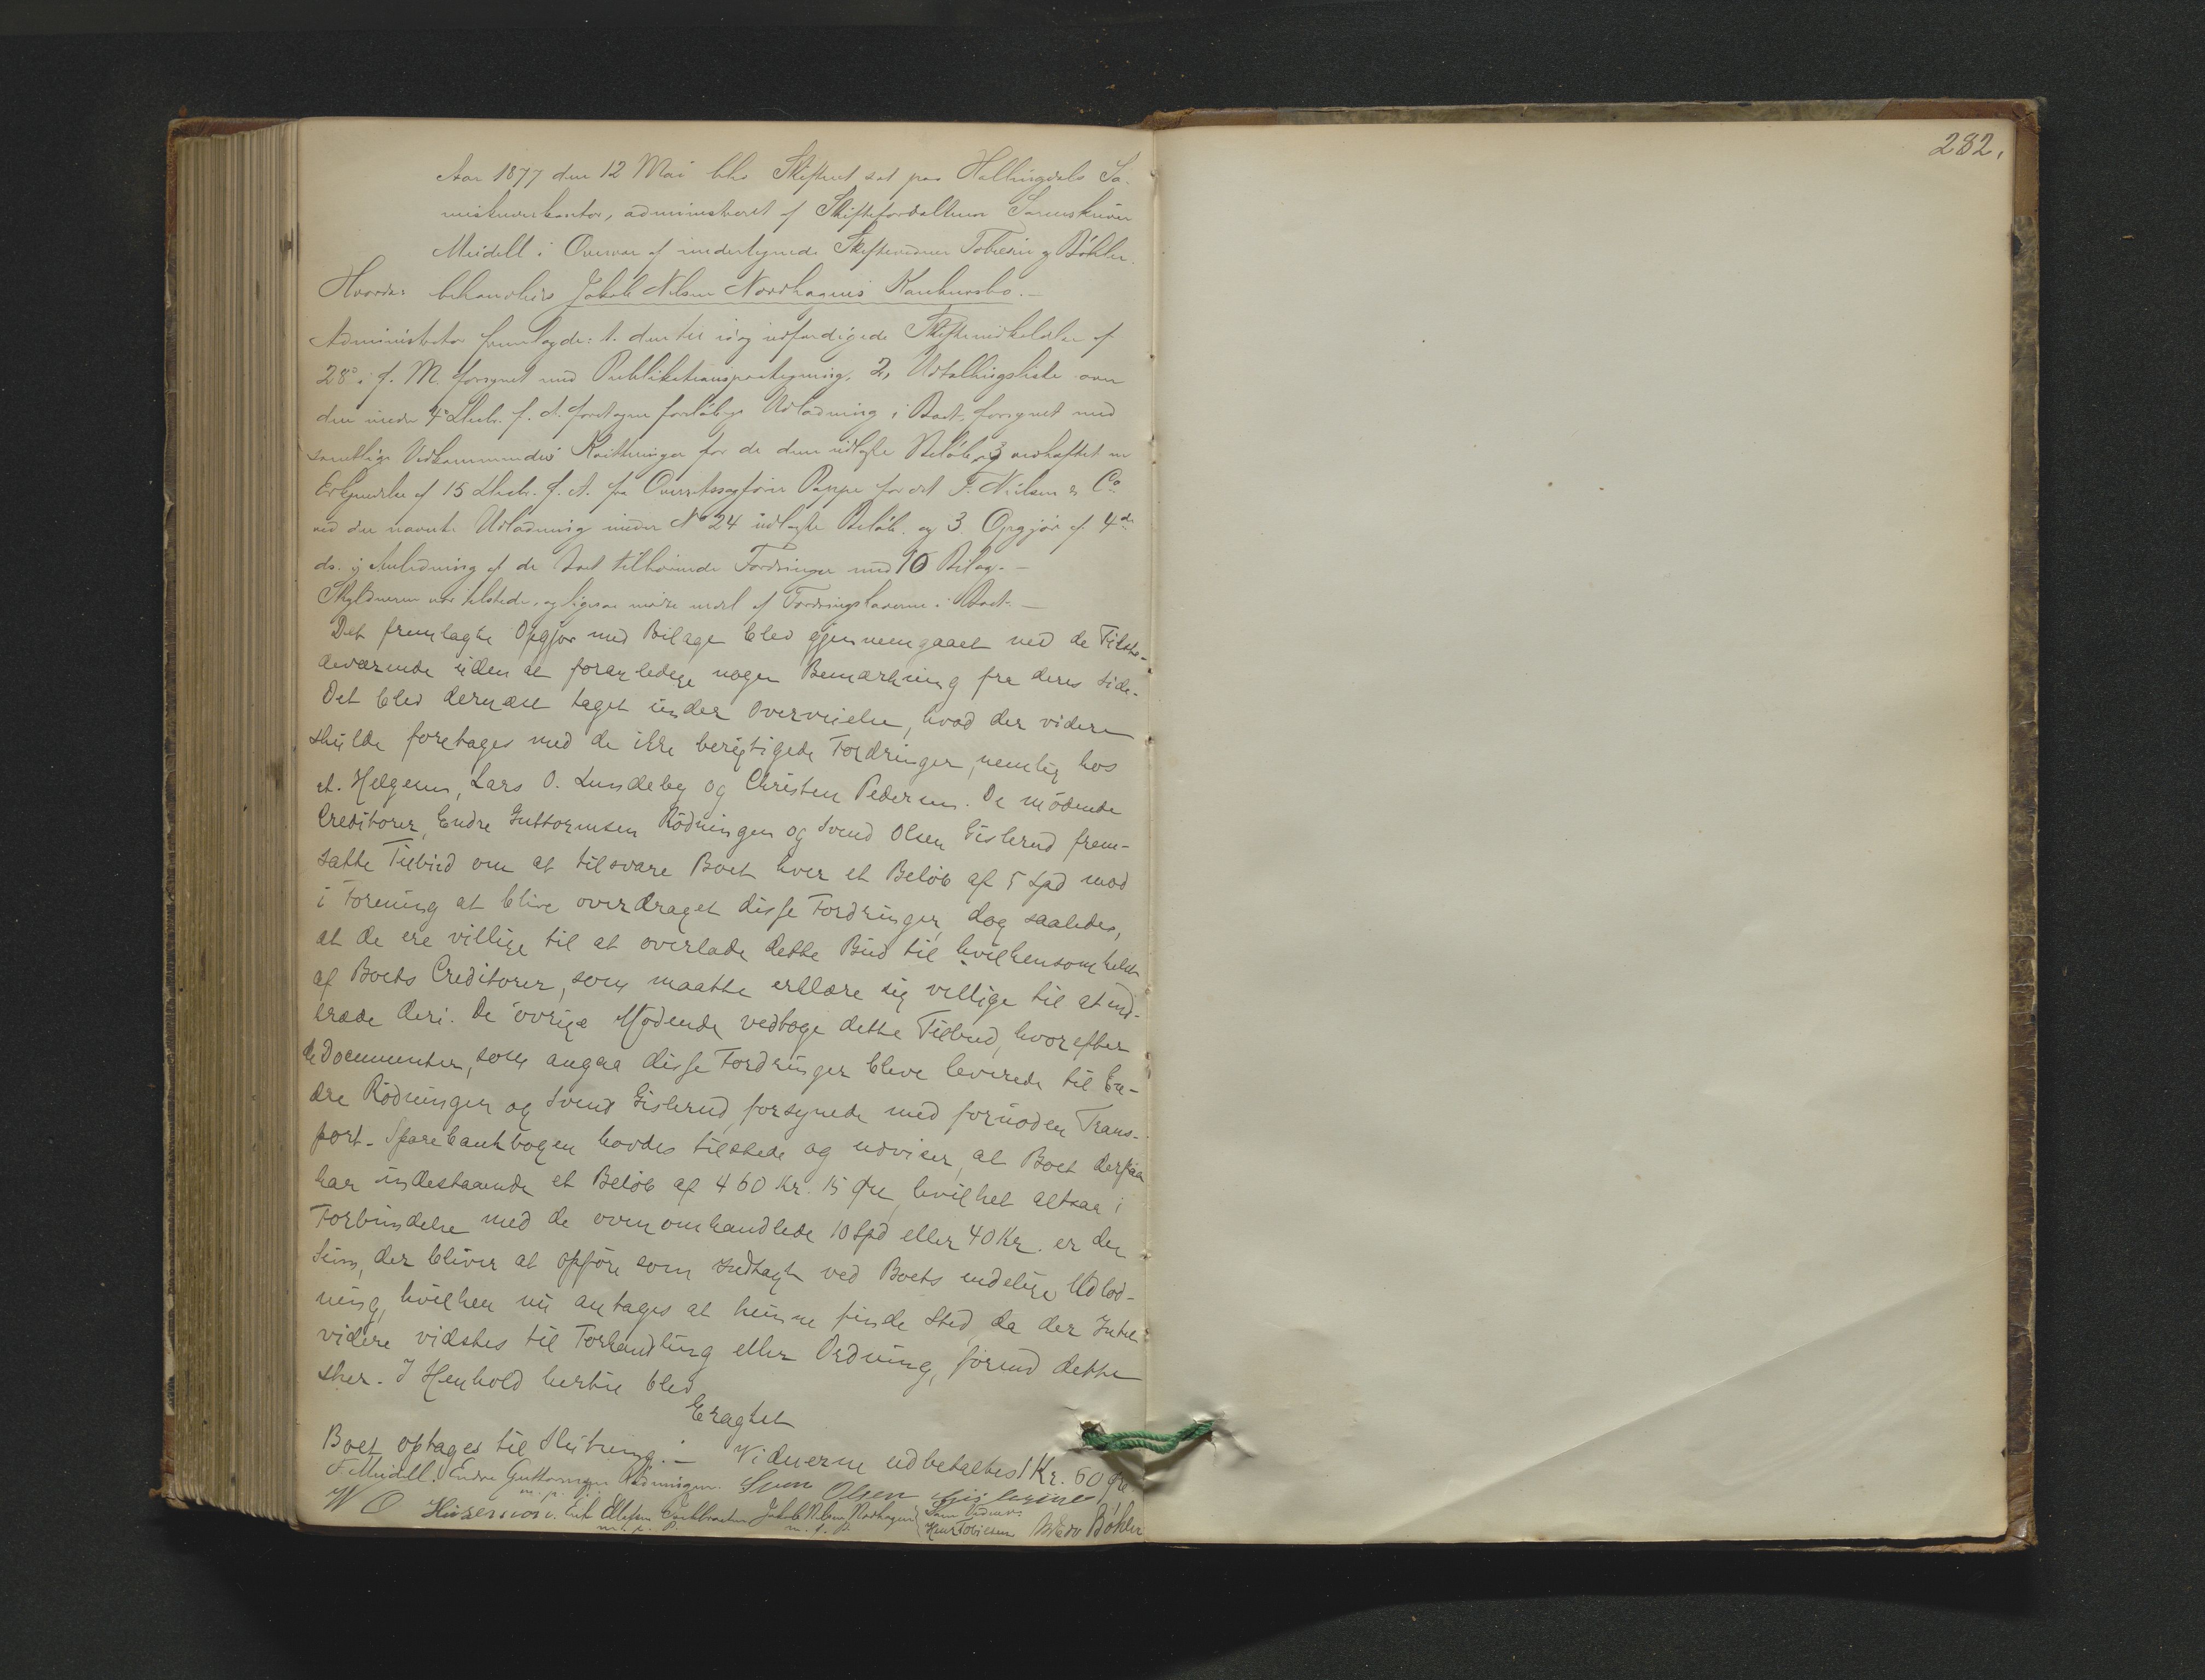 282.
Aar 1877 den 12 Mai blev Skifteret sat paa Hallingdals So-
renskriverkontor, administreret af Skifteforvalteren Sorenskriver
Meidell i Overvær af undertegnede Skiftevidner Tobiesen og Bøhler.
Hvorda behandledes Jakob Nilsen Nordhagens Konkursbo. —
Administrator fremlagde: 1. den her udfærdigede Skifteindkaldelse af
28de i f. M. forsynet med Publikationspaategning, 2, Udlodningsliste over
den under 4de Decbr. f. A. foretagne foreløbige Udlodning i Boet, forsynet med
samtlige Vedkommendes Kvitteringer for de dem udlagte Beløb, og vedhæftet en
Erkjendelse af 15 Decbr. f. A. fra Overretssagfører Pappe for det F. Nielsen & Co.
ved den nævnte Udlodning under No 24 udlagte Beløb, og 3. Opgjør af 4de
ds. i Anledning af de Boet tilhørende Fordringer med 10 Bilag. —
Skyldneren var tilstede, og ligesaa endel af Fordringshaverne i Boet. —
Det fremlagte Opgjør med Bilage blev gjennemgaaet med de Tilste-
deværende uden at foranledige nogen Bemærkning fra deres Side.
Det blev dernæst taget under Overveielse, hvad der videre
skulde foretages med de ikke berigtigede Fordringer, nemlig hos
A. Helgesen, Lars O. Lundeby og Christen Pedersen. De mødende
Creditorer, Endre Guttormsen Rødningen og Svend Olsen Gislerud frem-
satte Tilbud om at tilsvare Boet hver et Beløb af 5 Spd mod
i Forening at blive overdraget disse Fordringer, dog saaledes,
at de ere villige til at overlade dette Bud til hvilkensomhelst
af Boets Creditorer, som maatte erklære sig villige til at ind-
træde deri. De øvrige Mødende vedtoge dette Tilbud, hvorefter
de Documenter, som angaa disse Fordringer bleve leverede til En-
dre Rødningen og Svend Gislerud, forsynede med fornøden Trans-
port. Sparebankbogen havdes tilstede og udviser, at Boet derpaa
har indestaaende et Beløb af 460 Kr. 15 Øre, hvilket altsaa i
Forbindelse med de ovenomhandlede 10 Spd eller 40 Kr. er den
Sum, der bliver at opføre som Indtægt ved Boets endelige Udlod-
ning, hvilken nu antages at kunne finde Sted, da der Intet
videre vidstes til Forhandling eller Ordning, forind dette
sker. I Henhold hertil blev
Eragtet
Boet optages til Slutning. — Vidnerne udbetaltes 1 Kr. 60 Øre
F. Meidell. Endre Guttormsen Rødningen. Sven Olsen Gislerud
m. p. P.
W O Jakob Nilsen Nordhagen Som Vidner:
Tobiesen Bøhler
m. p. P. m. p. P.